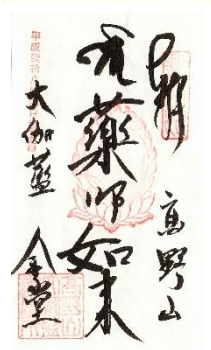 奉拝
高野山
藥師如来
大伽藍
金堂